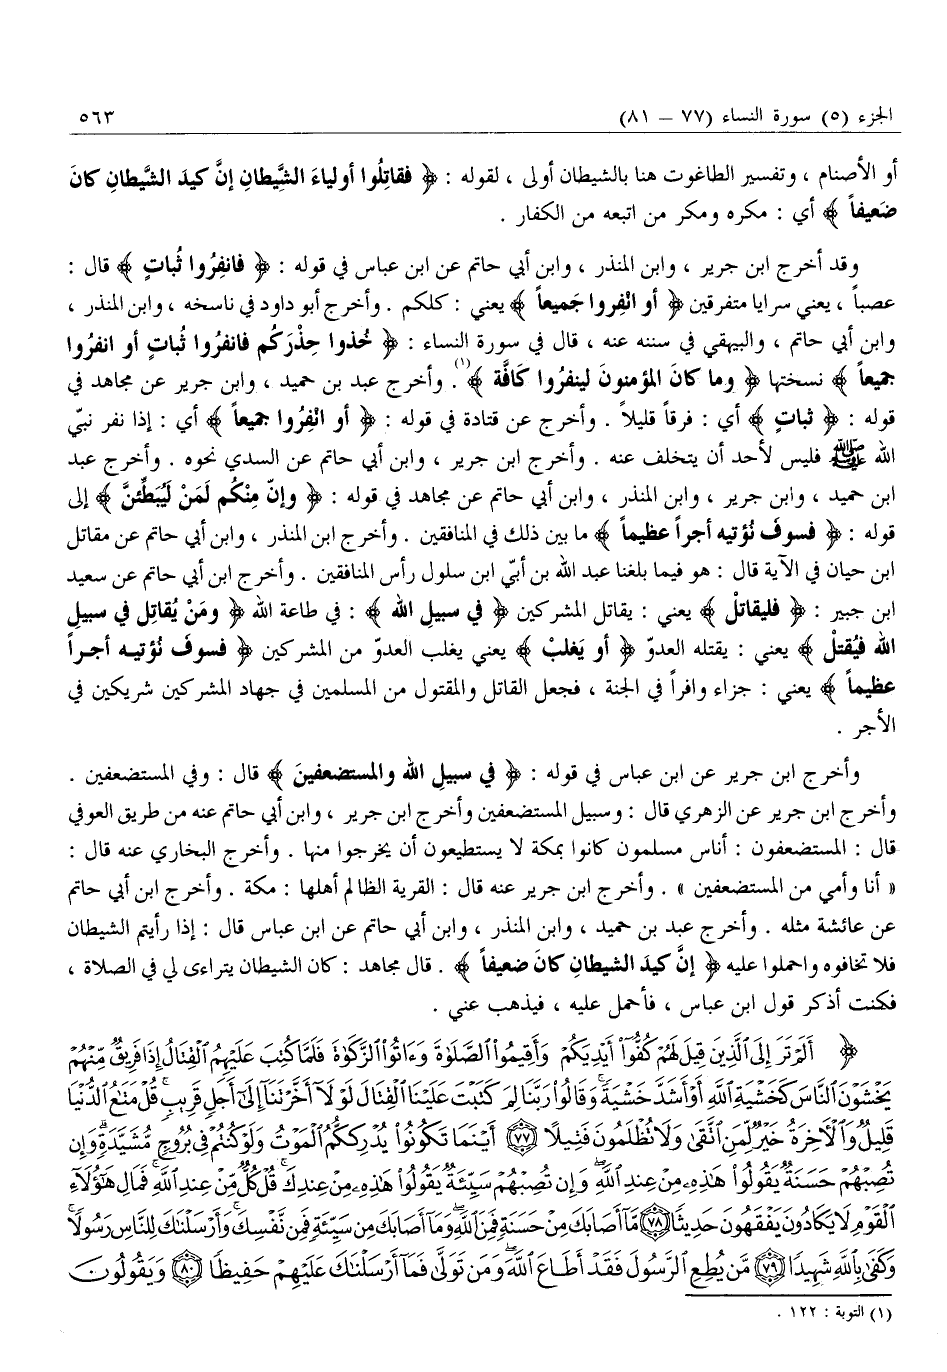 الجزء (٥) سورة النساء (٧٧ – ٨١) ٥٦٣
أو الأصنام ، وتفسير الطاغوت هنا بالشيطان أولى ، لقوله : ﴿ فقاتِلُوا أولياءَ الشَّيطانِ إنَّ كيدَ الشيطانِ كانَ
ضَعيفاً ﴾ أي : مكره ومكر من اتبعه من الكفار .
وقد أخرج ابن جرير ، وابن المنذر ، وابن أبي حاتم عن ابن عباس في قوله : ﴿ فانفِرُوا ثُباتٍ ﴾ قال :
عصباً ، يعني سرايا متفرقين ﴿ أو انْفِروا جَميعاً ﴾ يعني : كلكم . وأخرج أبو داود في ناسخه ، وابن المنذر ،
وابن أبي حاتم ، والبيهقي في سننه عنه ، قال في سورة النساء : ﴿ خُذوا حِذْرَكُم فانفروا ثُباتٍ أو انفروا
جميعاً ﴾ نسختها ﴿ وما كانَ المؤمنونَ لينفروا كافَّة ﴾(١) . وأخرج عبد بن حميد ، وابن جرير عن مجاهد في
قوله : ﴿ ثباتٍ ﴾ أي : فرقاً قليلاً . وأخرج عن قتادة في قوله : ﴿ أو انْفِروا جميعاً ﴾ أي : إذا نفر نبيّ
الله ﷺ فليس لأحد أن يتخلف عنه . وأخرج ابن جرير ، وابن أبي حاتم عن السدي نحوه . وأخرج عبد
ابن حميد ، وابن جرير ، وابن المنذر ، وابن أبي حاتم عن مجاهد في قوله : ﴿ وإنّ مِنْكُم لَمَنْ لَيُبَطِّئنَّ ﴾ إلى
قوله : ﴿ فسوفَ نُؤتيه أجراً عظيماً ﴾ ما بين ذلك في المنافقين . وأخرج ابن المنذر ، وابن أبي حاتم عن مقاتل
ابن حيان في الآية قال : هو فيما بلغنا عبد الله بن أبيّ ابن سلول رأس المنافقين . وأخرج ابن أبي حاتم عن سعيد
ابن جبير : ﴿ فليقاتلْ ﴾ يعني : يقاتل المشركين ﴿ في سبيلِ الله ﴾ : في طاعة الله ﴿ ومَنْ يُقاتِل في سبيلِ
الله فيُقتلْ ﴾ يعني : يقتله العدوّ ﴿ أو يَغلبْ ﴾ يعني يغلب العدوّ من المشركين ﴿ فسوفَ نُؤتيه أجراً
عظيماً ﴾ يعني : جزاء وافراً في الجنة ، فجعل القاتل والمقتول من المسلمين في جهاد المشركين شريكين في
الأجر .
وأخرج ابن جرير عن ابن عباس في قوله : ﴿ في سبيلِ الله والمستضعفينَ ﴾ قال : وفي المستضعفين .
وأخرج ابن جرير عن الزهري قال : وسبيل المستضعفين وأخرج ابن جرير ، وابن أبي حاتم عنه من طريق العوفي
قال : المستضعفون : أناس مسلمون كانوا بمكة لا يستطيعون أن يخرجوا منها . وأخرج البخاري عنه قال :
« أنا وأمي من المستضعفين » . وأخرج ابن جرير عنه قال : القرية الظالم أهلها : مكة . وأخرج ابن أبي حاتم
عن عائشة مثله . وأخرج عبد بن حميد ، وابن المنذر ، وابن أبي حاتم عن ابن عباس قال : إذا رأيتم الشيطان
فلا تخافوه واحملوا عليه ﴿ إنَّ كيدَ الشيطانِ كانَ ضعيفاً ﴾ . قال مجاهد : كان الشيطان يتراءى لي في الصلاة ،
فكنت أذكر قول ابن عباس ، فأحمل عليه ، فيذهب عني .
﴿ أَلَمْ تَرَ إِلَى ٱلَّذِينَ قِيلَ لَهُمْ كُفُّوٓا۟ أَيْدِيَكُمْ وَأَقِيمُوا۟ ٱلصَّلَوٰةَ وَءَاتُوا۟ ٱلزَّكَوٰةَ فَلَمَّا كُتِبَ عَلَيْهِمُ ٱلْقِتَالُ إِذَا فَرِيقٌ مِّنْهُمْ
يَخْشَوْنَ ٱلنَّاسَ كَخَشْيَةِ ٱللَّهِ أَوْ أَشَدَّ خَشْيَةً ۚ وَقَالُوا۟ رَبَّنَا لِمَ كَتَبْتَ عَلَيْنَا ٱلْقِتَالَ لَوْلَآ أَخَّرْتَنَآ إِلَىٰٓ أَجَلٍ قَرِيبٍ ۗ قُلْ مَتَٰعُ ٱلدُّنْيَا
قَلِيلٌ وَٱلْءَاخِرَةُ خَيْرٌ لِّمَنِ ٱتَّقَىٰ وَلَا تُظْلَمُونَ فَتِيلًا ٧٧ أَيْنَمَا تَكُونُوا۟ يُدْرِككُّمُ ٱلْمَوْتُ وَلَوْ كُنتُمْ فِى بُرُوجٍ مُّشَيَّدَةٍ ۗ وَإِن
تُصِبْهُمْ حَسَنَةٌ يَقُولُوا۟ هَٰذِهِۦ مِنْ عِندِ ٱللَّهِ ۖ وَإِن تُصِبْهُمْ سَيِّئَةٌ يَقُولُوا۟ هَٰذِهِۦ مِنْ عِندِكَ ۚ قُلْ كُلٌّ مِّنْ عِندِ ٱللَّهِ ۖ فَمَالِ هَٰٓؤُلَآءِ
ٱلْقَوْمِ لَا يَكَادُونَ يَفْقَهُونَ حَدِيثًا ٧٨ مَّآ أَصَابَكَ مِنْ حَسَنَةٍ فَمِنَ ٱللَّهِ ۖ وَمَآ أَصَابَكَ مِن سَيِّئَةٍ فَمِن نَّفْسِكَ ۚ وَأَرْسَلْنَٰكَ لِلنَّاسِ رَسُولًا ۚ
وَكَفَىٰ بِٱللَّهِ شَهِيدًا ٧٩ مَّن يُطِعِ ٱلرَّسُولَ فَقَدْ أَطَاعَ ٱللَّهَ ۖ وَمَن تَوَلَّىٰ فَمَآ أَرْسَلْنَٰكَ عَلَيْهِمْ حَفِيظًا ٨٠ وَيَقُولُونَ
(١) التوبة : ١٢٢ .